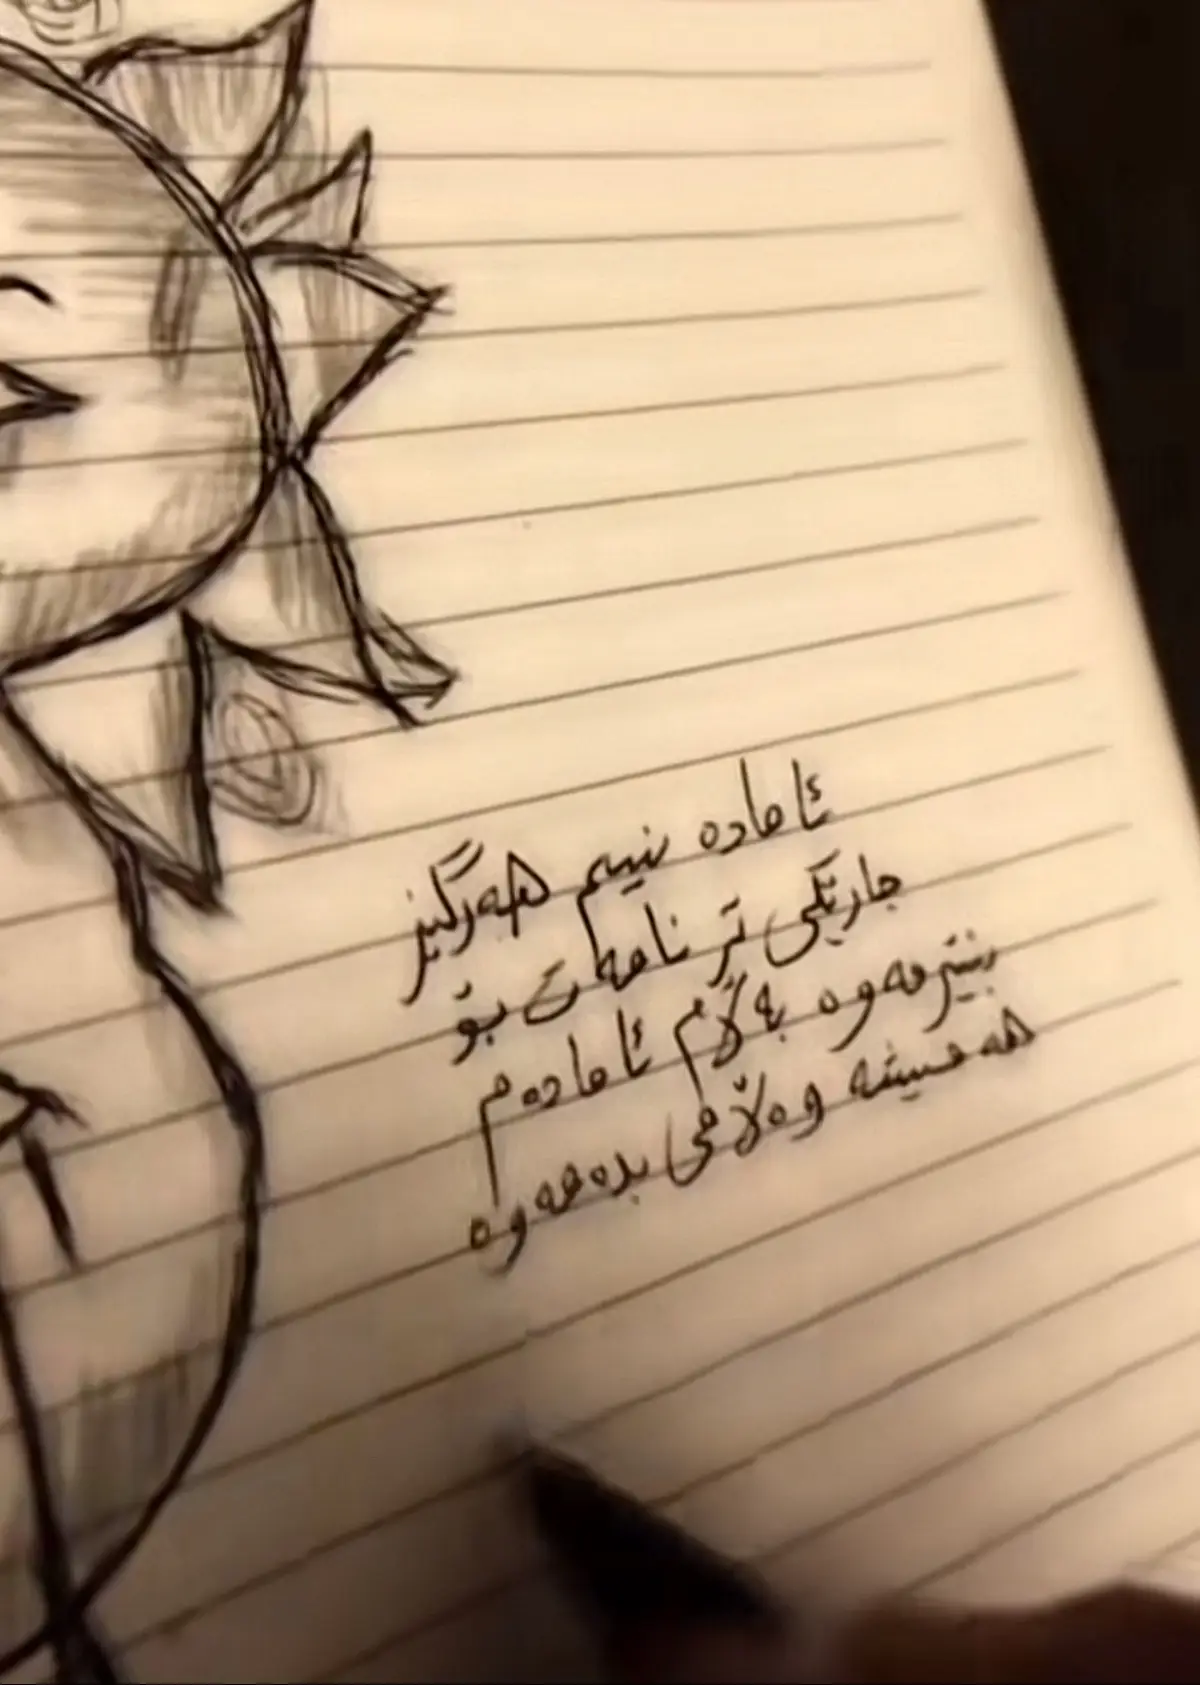 ئامادە نییم هەرگیز
جاریکی تر نامەت بۆ
بنێرمەوە بەڵام ئامادەم
هەمیشە وەڵامی بدەمەوە